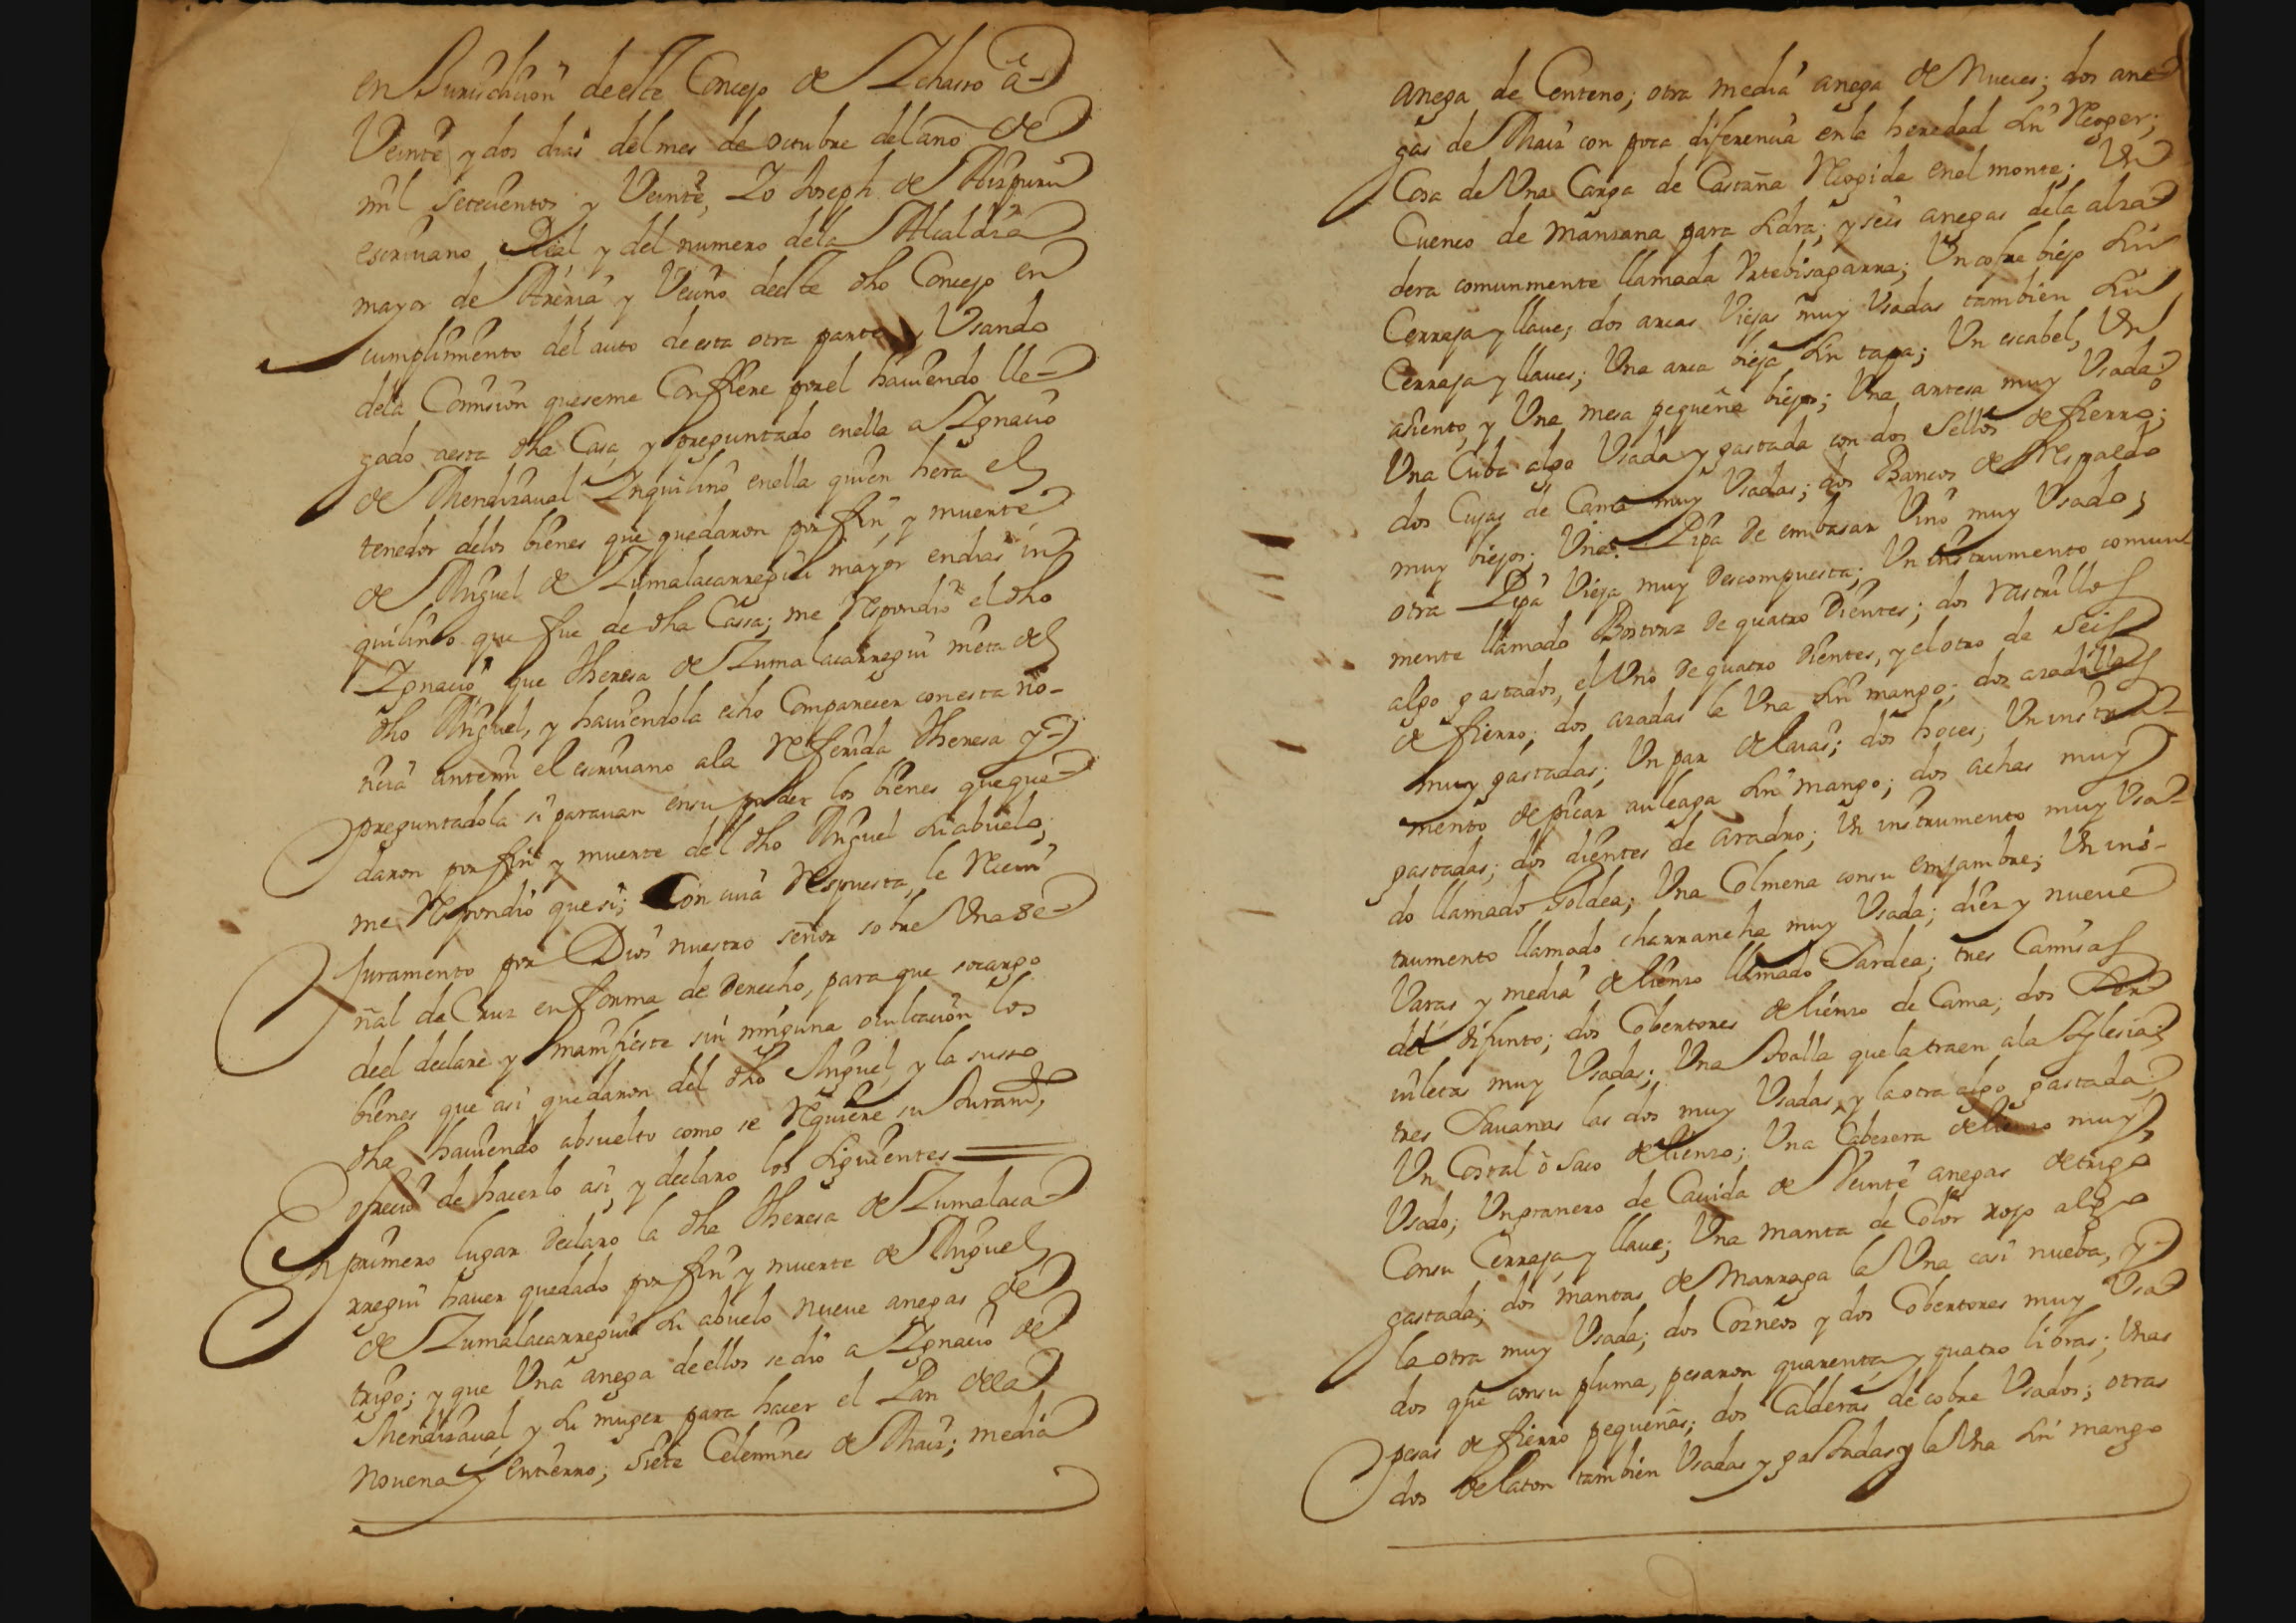 en Jurisdicion deeste Concejo de Ichasso â
Veinte y dos dias del mes de octubre del año de
mil setecientos y Veinte, Yo Joseph de Aizpuru
escriuano Real y del numero dela Alcaldia
mayor de Areria y Vecino deeste dho Concejo en
cumplimiento del auto deesta otra parte y Usando
dela Comision queseme Confiere porel hauiendo lle-
gado aesta dha Casa y preguntado enella a Ignacio
de Mendizaual Inquilino enella quien hera el
tenedor delos bienes que quedaron por fin y muerte
de Miguel de Zumalacarregui mayor endias in
quilino que fue de dha Cassa; me respondio el dho
Ignacio, que Theresa de Zumalacarregui nieta del
dho Miguel, y hauiendola echo Comparecer conesta no-
ticia antemi el escriuano ala referida Theresa y
preguntadola si parauan ensu poder los bienes queque
daron por fin y muerte del dho Miguel su abuelo;
me respondio quesi; Con cuia respuesta le reciui
Juramento por Dios nuestro señor sobre Una se
ñal de Cruz en forma de derecho, para que socargo
deel declare y manifieste sin ninguna ocultacion los
bienes que asi quedaron del dho Miguel, y la susso
dha hauiendo absuelto como se requiere su Juramto,
ofrecio de hacerlo asi, y declaro los siguientes
En primero lugar declaro la dha Theresa de Zumalaca
rregui hauer quedado por fin y muerte de Miguel
de Zumalacarregui su abuelo nueue anegas de
trigo; y que Una anega deellos se dio a Ignacio de
Mendizaual y su muger para hacer el Pan dela
Nouena y entierro; siete Celemines de Maiz; media
anega de Centeno; otra media anega de Nueces; dos ane
gas de Maiz con poca diferencia enla heredad sin recoger;
Cosa de Una Carga de Castaña recogida enel monte; Un
Cuenco de manzana para sidra; y seis anegas dela alza
dera comunmente llamada Urtebisagarra; Un cofre biejo sin
Cerraja y llaue; dos arcas Viejas muy Usadas tambien sin
Cerraja y llaues; Una arca bieja sin tapa; Un escabel, Un
asiento, y Una mesa pequeña biejos; Una artesa muy Usada;
Una Cuba algo Usada y gastada con dos sellos de fierro;
dos Cujas de Cama muy Usadas; dos Bancos de respaldo
muy biejos; Una Pipa de embasar Vino muy Usado;
otra Pipa Vieja muy descompuesta; Un instrumento comun
mente llamado Bostorz de quatro dientes; dos rastrillos
algo gastados, el Uno de quatro dientes, y el otro de seis
de fierro; dos azadas la Una sin mango; dos azadillas
muy gastadas; Un par de laias; dos hoces; Un instru-
mento de picar auleaga sin mango; dos achas muy
gastadas; dos dientes de aradro; Un instrumento muy Usa-
do llamado Goldea; Una Colmena consu emjambre; Un ins-
trumento llamado charrancha muy Usada; diez y nueue
Varas y media de lienzo llamado Sardea; tres Camisas
del difunto; dos Cobertores de lienzo de Cama; dos Ser
uilletas muy Usadas; Una toalla que la traen ala Iglesia;
tres Sauanas las dos muy Usadas, y la otra algo gastada;
Un Costal ô saco de lienzo; Una Cabezera de lienzo muy
Usado; Un granero de Cauida de Veinte anegas de trigo
Consu Cerraja y llaue; Una manta de Color roxo algo
gastada; dos mantas de Marraga la Una casi nueba, y
la otra muy Usada; dos Cozneos y dos Cobertores muy Usa
dos que consu pluma, pesaron quarenta y quatro libras; Unas
pesas de fierro pequeñas; dos Calderas de cobre Usados; otras
dos de laton tambien Usadas y gastadas y la Una sin mango